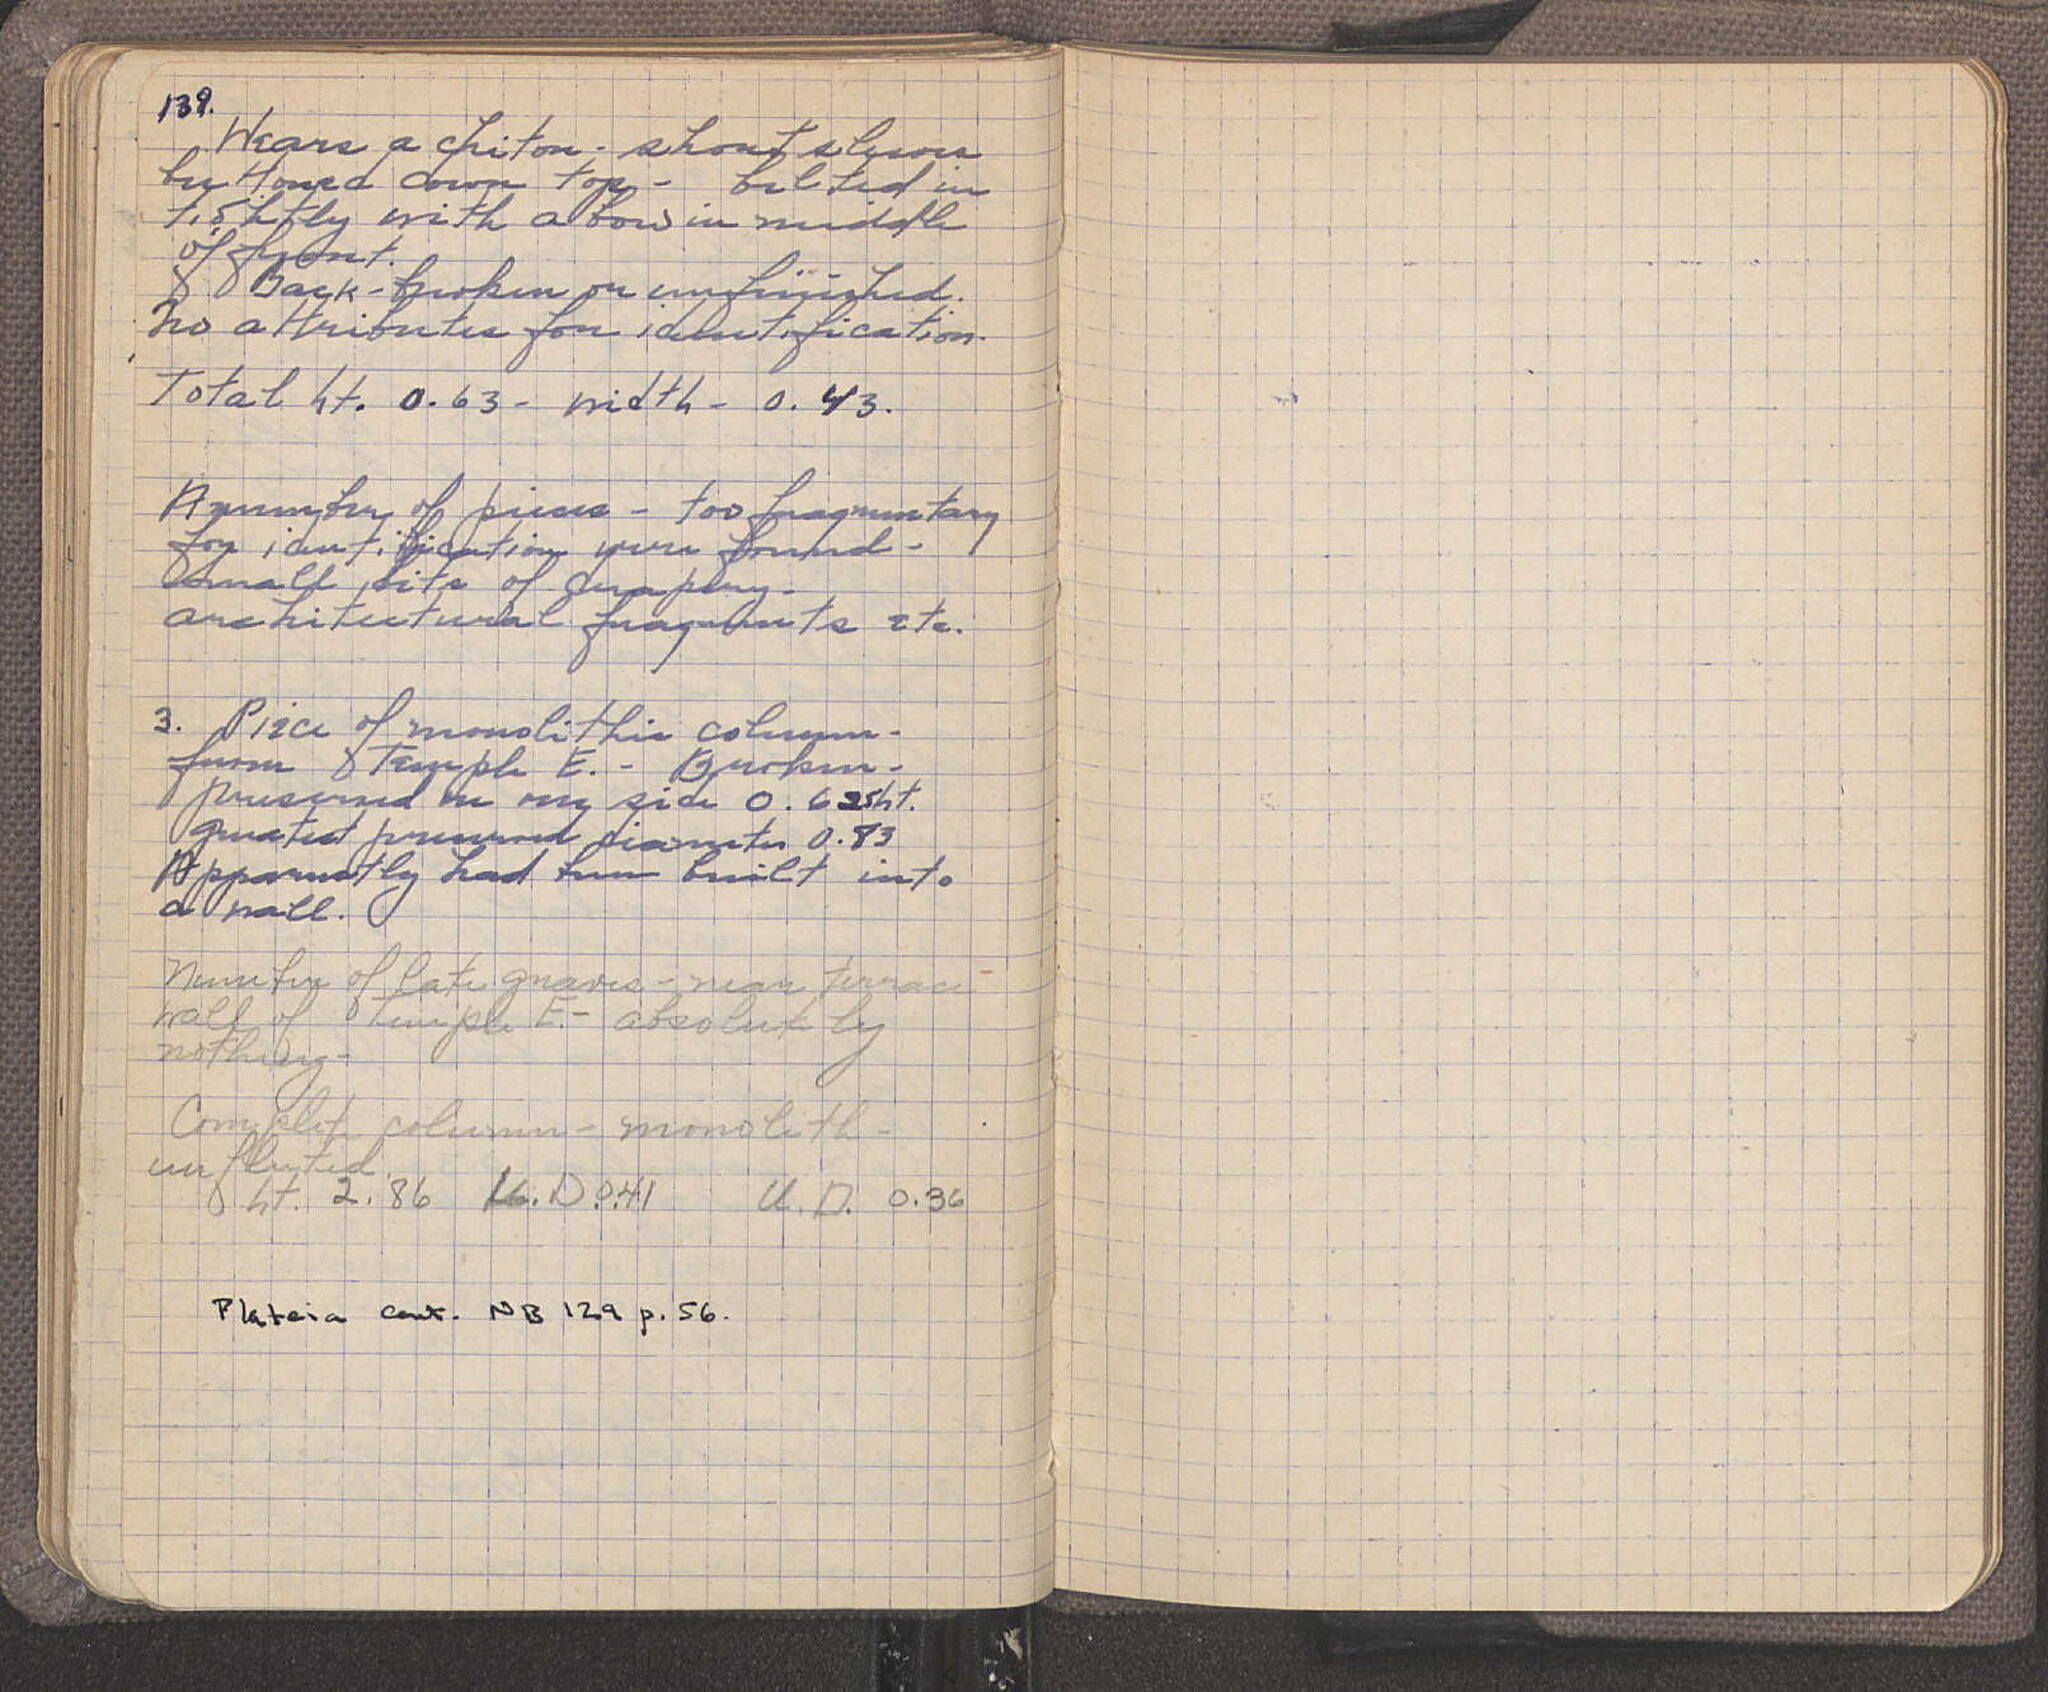 139.
Wears a chiton - short sleeves
buttoned down top - belted in
tightly with a bow in middle
of front.
Back - broken or unfinished.
No attributes for identification.
Total ht. 0.63 - width - 0.43.
A number of pieces - too fragmentary
for identification were found -
small bits of drapery -
architectural fragments etc.
3. Piece of monolithic column -
from Temple E. - Broken -
preserved on one side 0.625 ht.
greatest preserved diameter 0.83
Apparently had been built into
a wall.
Number of late graves - near terrace
wall of Temple E. - absolutely
nothing -
Complete column - monolith -
unfluted.
ht. 2.86 L. D 0.41 U. D. 0.36
Plateia cont. NB 129 p. 56.